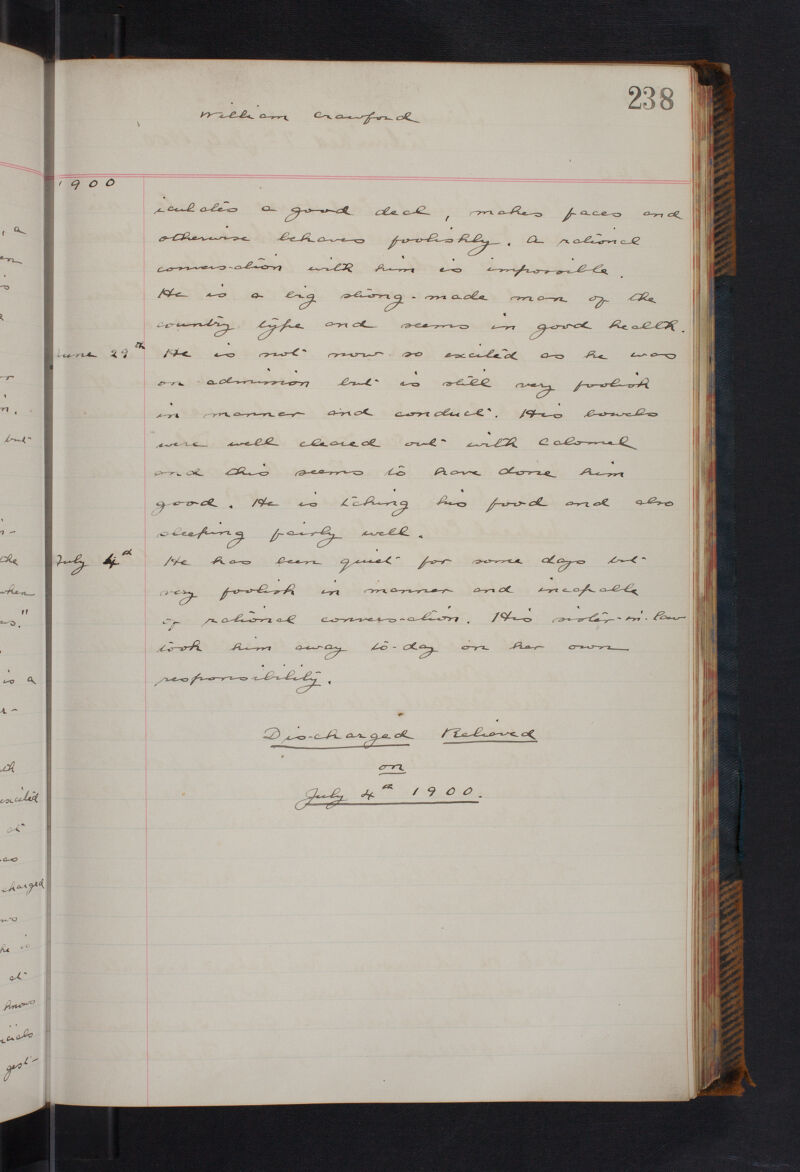 238
William Crawford
1900
iculates a good deal, makes faces and
otherwise behaves foolishly. A rational
convers-ation with him is impossible.
He is a big strong-made man of the
country type and seems in good health.
June 29th He is not now so excited as he was
on admission but is still very foolish
in manner and conduct. His bowels
were well cleared out with Calomel
and this seems to have done him
good. He is taking his food and also
sleeping fairly well.
July 4th He has been quiet for some days but
very foolish in manner and incapable
of rational convers-ation. His sister-in-law
took him away to-day on her own
responsibility.
Dis-charged Relieved
on
July 4th 1900.
, a
but
the
when
is a
excited
at
as
charged
he is
at
knows
gest-